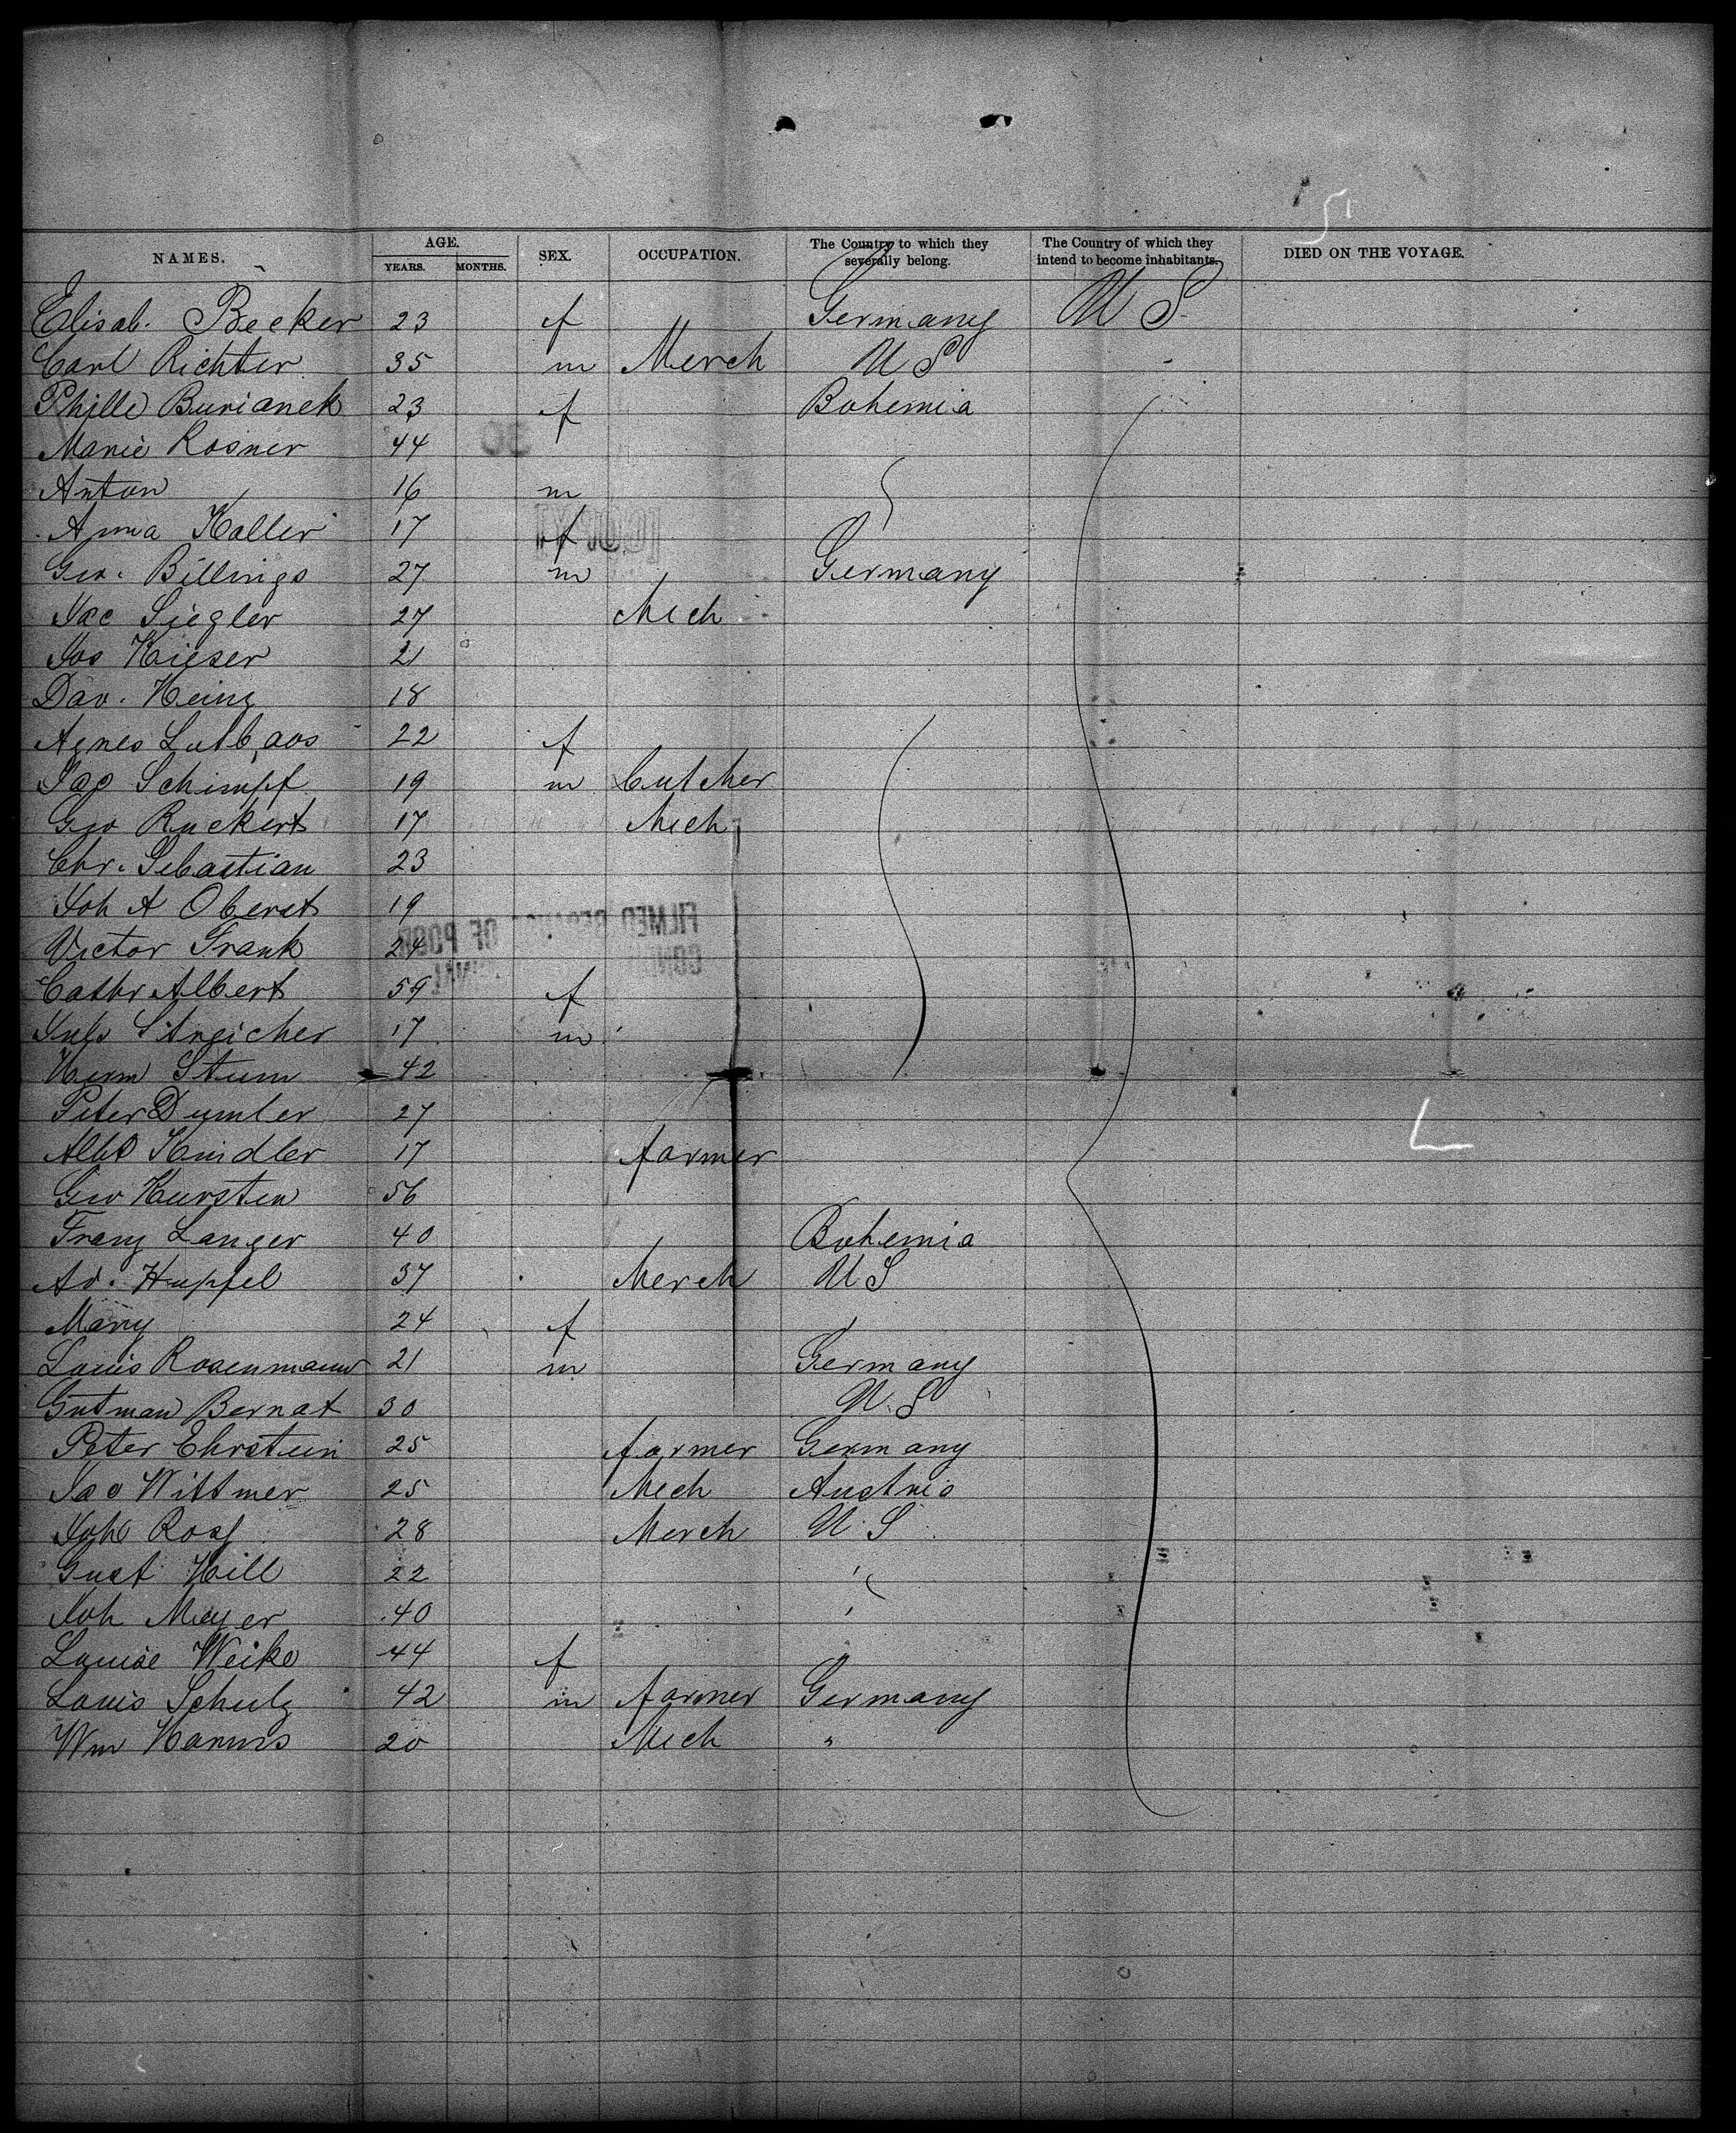 NAMES. AGE. YEARS. MONTHS. SEX. OCCUPATION. The Country to which they severally belong. The Country of which they intend to become inhabitants. DIED ON THE VOYAGE.
Elisab. Becker 23 f Germany U S
Carl Richter 35 m Merch U S
Phille Burianek 23 f Bohemia
Marie Rosner 44
Anton 16 m
Anna Koller 17 f
Geo. Billings 27 m Germany
Jac Siegler 27 Mech
Jos Kieser 21
Dav. Heinz 18
Agnes 22 f
Jac Schimpf 19 m butcher
Geo Ruckert 17 Mech
Chr. Sebastian 23
Joh A Oberst 19
Victor Frank 24
Cathr Albert 59 f
Juls Streicher 17 m
Herm Stum 42
Peter Dumler 27
Albt Kindler 17 farmer
Geo Kursten 56
Franz Langer 40 Bohemia
Ad. Hupfel 37 Merch U S
Mary 24 f
Louis Rosenmann 21 m Germany
Gutman Bernat 30 U. S
Peter Ehrstein 25 farmer Germany
Jac Wittmer 25 Mech Austria
Joh Rosf 28 Merch U. S
Gust Hill 22 "
Joh Meyer 40 "
Louise Weike 44 f
Louis Schulz 42 m farmer Germany
Wm Hanms 20 Mech "